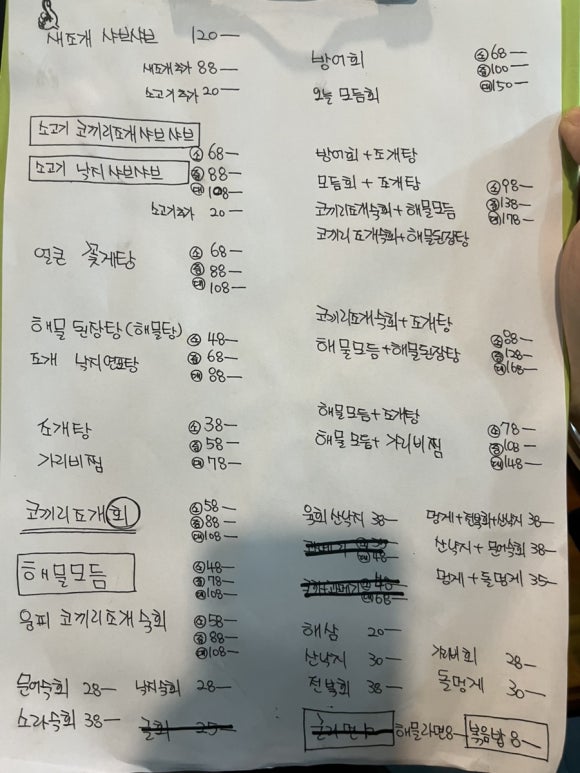 새조개 샤브샤브 120-
새조개추가 88-
소고기추가 20-
소고기 코끼리조개샤브샤브
소고기 낙지샤브샤브
소 68-
중 88-
대 108-
소고기추가 20-
얼큰 꽃게탕
소 68-
중 88-
대 108-
해물된장탕(해물탕)
조개 낙지연포탕
소 48-
중 68-
대 88-
조개탕
가리비찜
소 38-
중 58-
대 78-
코끼리조개회
소 58-
중 88-
대 108-
해물모듬
소 48-
중 78-
대 108-
웅피 코끼리조개숙회
소 58-
중 88-
대 108-
문어숙회 28- 낙지숙회 28-
소라숙회 38- 굴회 25-
방어회
오늘 모듬회
소 68-
중 100-
대 150-
방어회+조개탕
모듬회+조개탕
코끼리조개숙회+해물모듬
코끼리조개숙회+해물된장탕
소 98-
중 138-
대 178-
코끼리조개숙회+조개탕
해물모듬+해물된장탕
소 88-
중 128-
대 168-
해물모듬+조개탕
해물모듬+가리비찜
소 78-
중 108-
대 148-
육회산낙지 38- 멍게+전복회+산낙지 38-
산낙지+문어숙회 38-
대 48-
멍게+돌멍게 35-
48-
대 68-
해삼 20-
산낙지 30- 가리비회 28-
전복회 38- 돌멍게 30-
굴라면 해물라면 8- 볶음밥 8-